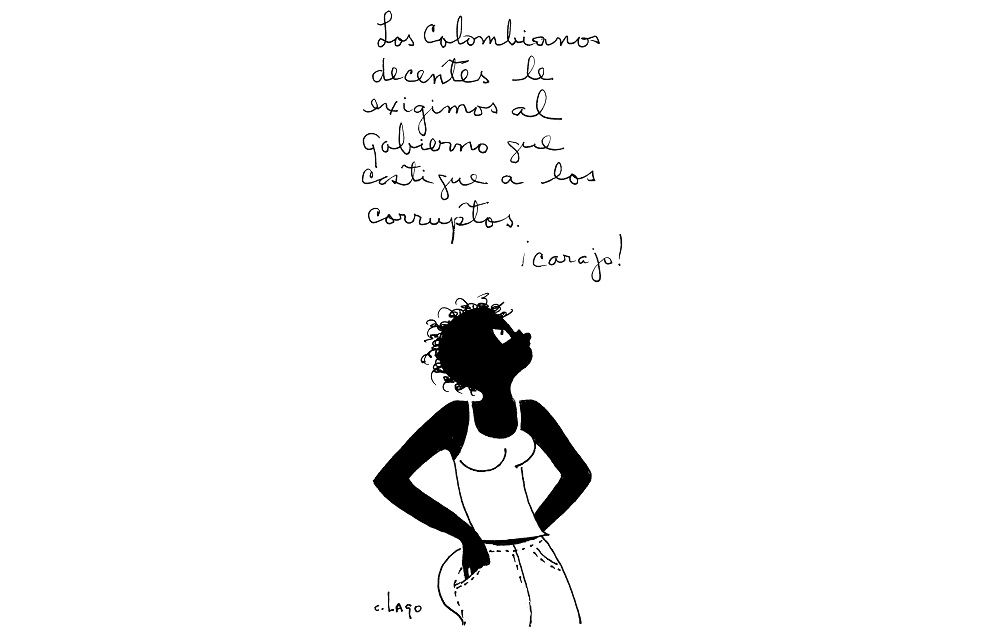 Los Colombianos
decentes le
exigimos al
Gobierno que
castigue a los
corruptos.
¡carajo!
c. Lago